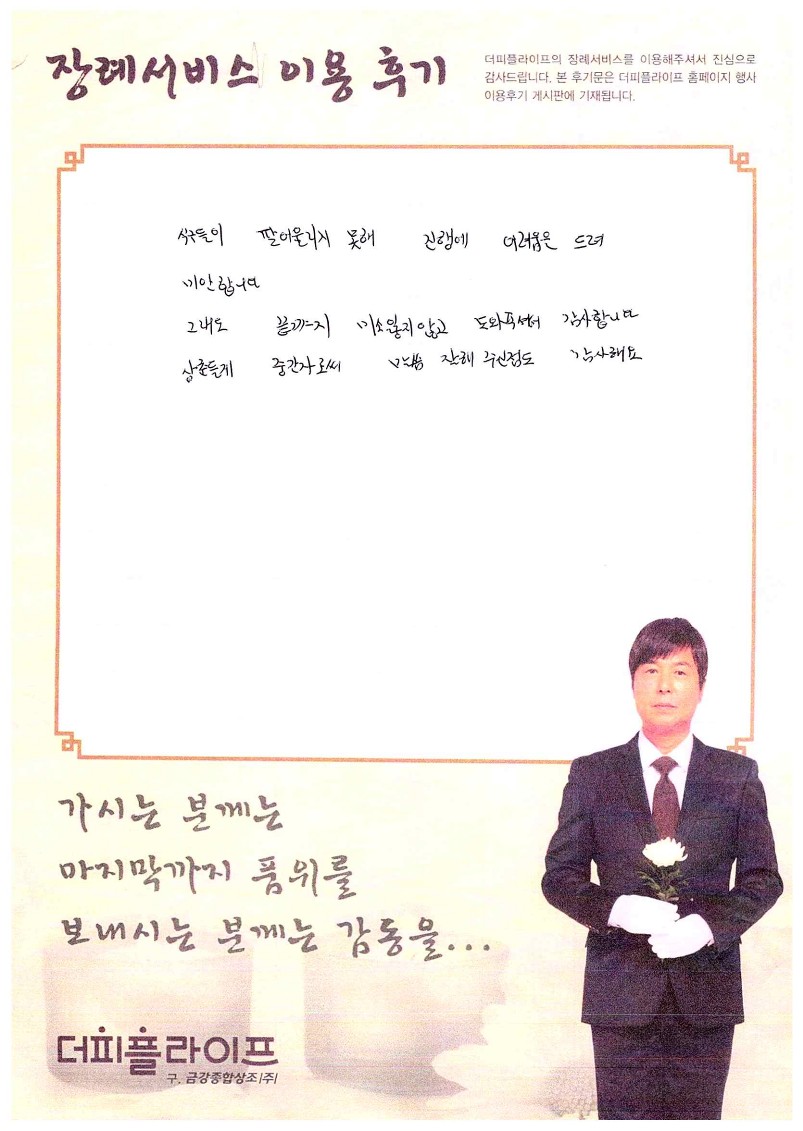 장례서비스 이용 후기
더피플라이프의 장례서비스를 이용해주셔서 진심으로
감사드립니다. 본 후기문은 더피플라이프 홈페이지 행사
이용후기 게시판에 기재됩니다.
식구들이 잘어울리지 못해 진행에 어려움은 드려
미안합니다
그래도 끝까지 미소잃지않고 도와주셔서 감사합니다
상준들게 중간자로써 말씀 잘해 주신점도 감사해요
가시는 분께는
마지막까지 품위를
보내시는 분께는 감동을...
더피플라이프
구. 금강종합상조(주)